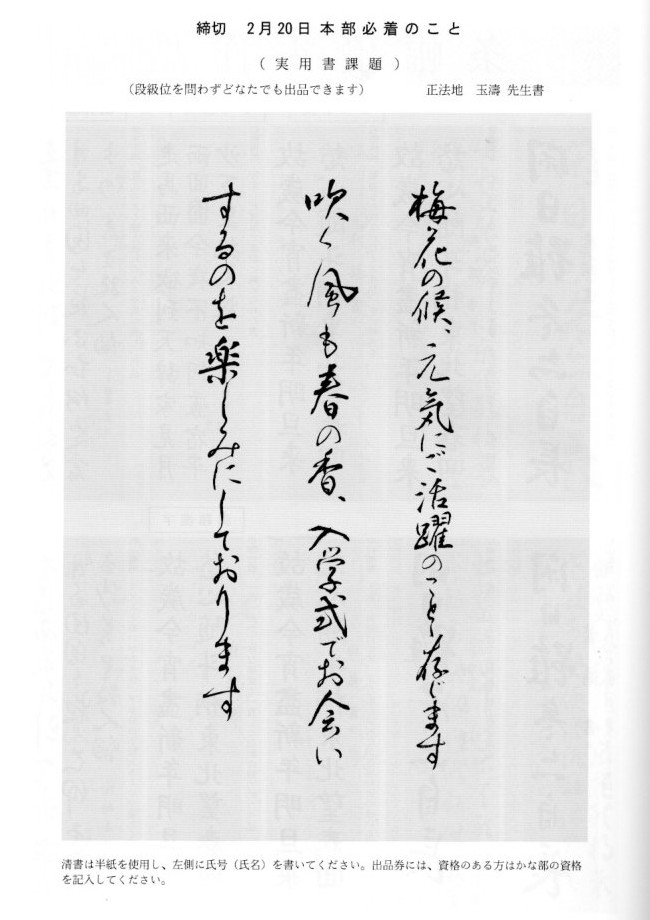 締切　2月20日本部必着のこと
（実用書課題）
（段級位を問わずどなたでも出品できます）　正法地　玉濤 先生書
梅花の候、元気にご活躍のことと存じます
吹く風も春の香、入学式でお会い
するのを楽しみにしております
清書は半紙を使用し、左側に氏号（氏名）を書いてください。出品券には、資格のある方はかな部の資格
を記入してください。